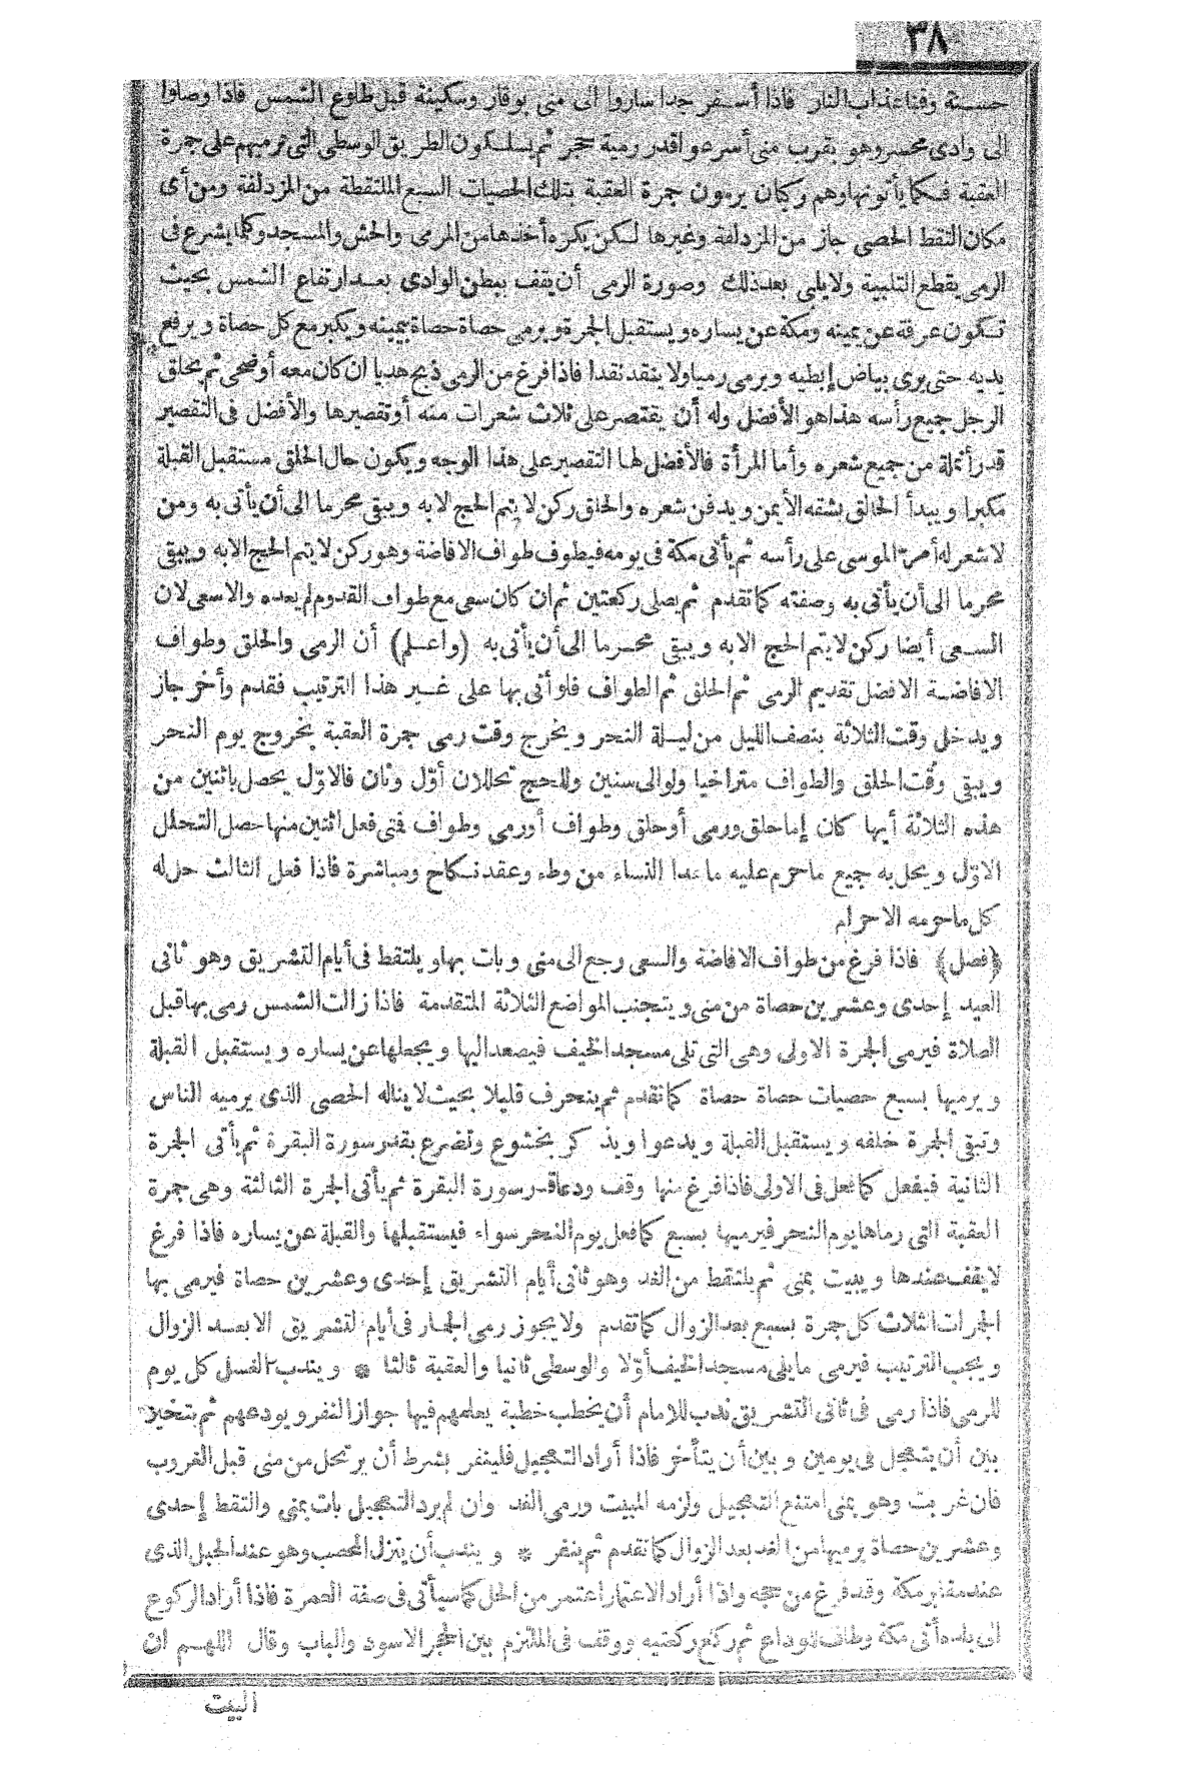 ٣٨
حسنة وقنا عذاب النار فاذا أسفر جدا ساروا الى منى بوقار وسكينة قبل طلوع الشمس فاذا وصلوا
الى وادى محسر وهو بقرب منى أسرعوا قدر رمية حجر ثم يسلكون الطريق الوسطى التى ترميهم على جمرة
العقبة فكما يأتونها وهم ركبان يرمون جمرة العقبة بتلك الحصيات السبع الملتقطة من المزدلفة ومن أى
مكان التقط الحصى جاز من المزدلفة وغيرها لكن يكره أخذها من المرمى والحش والمسجد وكما يشرع فى
الرمى يقطع التلبية ولا يلبى بعد ذلك وصورة الرمى أن يقف ببطن الوادى بعد ارتفاع الشمس بحيث
تكون عرفة عن يمينه ومكة عن يساره ويستقبل الجمرة ويرمى حصاة حصاة بيمينه ويكبر مع كل حصاة ويرفع
يديه حتى يرى بياض إبطيه ويرمى رميا ولا ينقد نقدا فاذا فرغ من الرمى ذبح هديا ان كان معه أو ضحى ثم يحلق
الرجل جميع رأسه هذا هو الأفضل وله أن يقتصر على ثلاث شعرات منه أو تقصيرها والأفضل فى التقصير
قدر أنملة من جميع شعره وأما المرأة فالأفضل لها التقصير على هذا الوجه ويكون حال الحلق مستقبل القبلة
مكبرا ويبدأ الحالق بشقه الأيمن ويدفن شعره والحلق ركن لا يتم الحج الا به ويبقى محرما الى أن يأتى به ومن
لا شعر له أمر الموسى على رأسه ثم يأتى مكة فى يومه فيطوف طواف الافاضة وهو ركن لا يتم الحج الا به ويبقى
محرما الى أن يأتى به وصفته كما تقدم ثم يصلى ركعتين ثم ان كان سعى مع طواف القدوم لم يعده والا سعى لان
السعى أيضا ركن لا يتم الحج الا به ويبقى محرما الى أن يأتى به (واعلم) أن الرمى والحلق وطواف
الافاضة الافضل تقديم الرمى ثم الحلق ثم الطواف فلو أتى بها على غير هذا الترتيب فقدم وأخر جاز
ويدخل وقت الثلاثة بنصف الليل من ليلة النحر ويخرج وقت رمى جمرة العقبة بخروج يوم النحر
ويبقى وقت الحلق والطواف متراخيا ولو الى سنين وللحج تحللان أول وثان فالاول يحصل باثنين من
هذه الثلاثة أيها كان إما حلق ورمى أو حلق وطواف أو رمى وطواف فتى فعل اثنين منها حصل التحلل
الاول ويحل به جميع ما حرم عليه ما عدا النساء من وطء وعقد نكاح ومباشرة فاذا فعل الثالث حل له
كل ما حرمه الاحرام
(فصل) فاذا فرغ من طواف الافاضة والسعى رجع الى منى وبات بها ويلتقط فى أيام التشريق وهو ثانى
العيد إحدى وعشرين حصاة من منى ويتجنب المواضع الثلاثة المتقدمة فاذا زالت الشمس رمى بها قبل
الصلاة فيرمى الجمرة الاولى وهى التى تلى مسجد الخيف فيصعد اليها ويجعلها عن يساره ويستقبل القبلة
ويرميها بسبع حصيات حصاة حصاة كما تقدم ثم ينحرف قليلا بحيث لا يناله الحصى الذى يرميه الناس
وتبقى الجمرة خلفه ويستقبل القبلة ويدعوا ويذكر بخشوع وتضرع بقدر سورة البقرة ثم يأتى الجمرة
الثانية فيفعل كما فعل فى الاولى فاذا فرغ منها وقف ودعا قدر سورة البقرة ثم يأتى الجمرة الثالثة وهى جمرة
العقبة التى رماها يوم النحر فيرميها بسبع كما فعل يوم النحر سواء فيستقبلها والقبلة عن يساره فاذا فرغ
لا يقف عندها ويبيت بمنى ثم يلتقط من الغد وهو ثانى أيام التشريق إحدى وعشرين حصاة فيرمى بها
الجمرات الثلاث كل جمرة بسبع بعد الزوال كما تقدم ولا يجوز رمى الجمار فى أيام التشريق الا بعد الزوال
ويجب الترتيب فيرمى ما يلى مسجد الخيف أولا والوسطى ثانيا والعقبة ثالثا * ويندب الغسل كل يوم
للرمى فاذا رمى فى ثانى التشريق ندب للامام أن يخطب خطبة يعلمهم فيها جواز النفر ويودعهم ثم يتخير
بين أن يتعجل فى يومين وبين أن يتأخر فاذا أراد التعجيل فلينفر بشرط أن يرتحل من منى قبل الغروب
فان غربت وهو بمنى امتنع التعجيل ولزمه المبيت ورمى الغد وان لم يرد التعجيل بات بمنى والتقط إحدى
وعشرين حصاة يرميها من الغد بعد الزوال كما تقدم ثم ينفر * ويندب أن ينزل المحصب وهو عند الجبل الذى
عند مقابر مكة وقد فرغ من حجه واذا أراد الاعتمار اعتمر من الحل كما سيأتى فى صفة العمرة فاذا أراد الركوع
الى بلده أتى مكة وطاف للوداع ثم ركع ركعتيه ووقف فى الملتزم بين الحجر الاسود والباب وقال اللهم ان
البيت